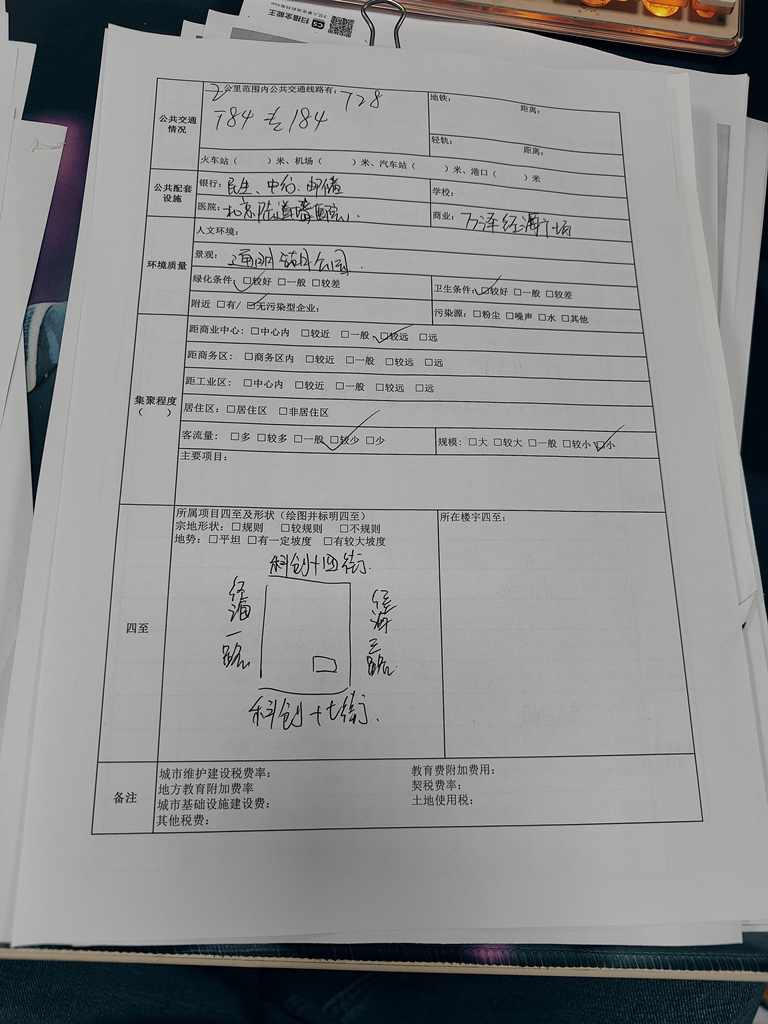 扫描全能王
公共交通情况
2公里范围内公共交通线路有：T28
T84 专184
地铁： 距离：
轻轨： 距离：
火车站（ ）米、机场（ ）米、汽车站（ ）米、港口（ ）米
公共配套设施
银行：民生、中行、邮储
学校：
医院：北京
商业：万泽经海广场
环境质量
人文环境：
景观：通明湖公园
绿化条件：☑较好 □一般 □较差
卫生条件：☑较好 □一般 □较差
附近 □有/☑无污染型企业：
污染源：□粉尘 □噪声 □水 □其他
集聚程度（ ）
距商业中心：□中心内 □较近 □一般 ☑较远 □远
距商务区：□商务区内 □较近 □一般 □较远 □远
距工业区：□中心内 □较近 □一般 □较远 □远
居住区：□居住区 □非居住区
客流量：□多 □较多 □一般 ☑较少 □少
规模：□大 □较大 □一般 □较小 ☑小
主要项目：
四至
所属项目四至及形状（绘图并标明四至）
宗地形状：□规则 □较规则 □不规则
地势：□平坦 □有一定坡度 □有较大坡度
所在楼宇四至：
科创十四街
经海一路
经海三路
科创十七街
备注
城市维护建设税费率： 教育费附加费用：
地方教育附加费率 契税费率：
城市基础设施建设费： 土地使用税：
其他税费：